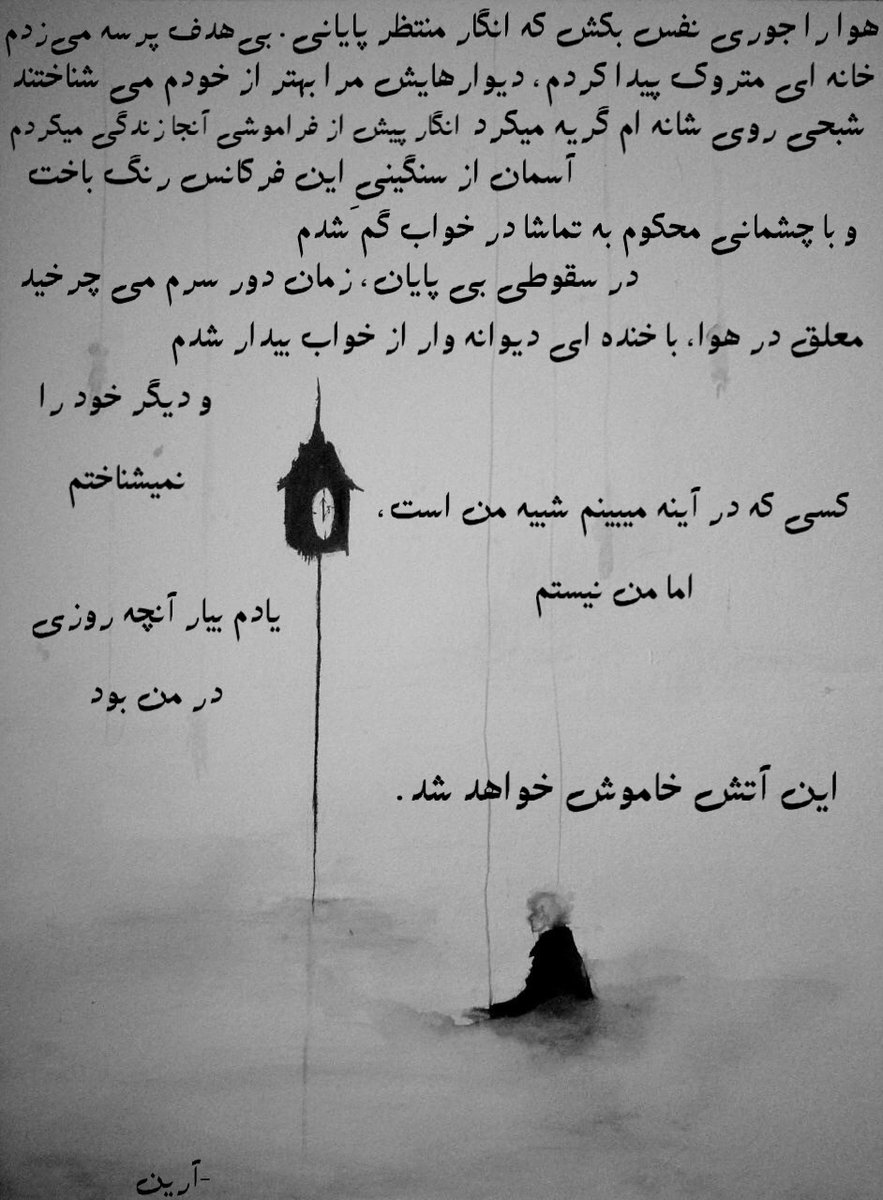 هوا را جوری نفس بکش که انگار منتظر پایانی. بی‌هدف پرسه می‌زدم
خانه ای متروک پیدا کردم، دیوارهایش مرا بهتر از خودم می شناختند
شبحی روی شانه ام گریه میکرد انگار پیش از فراموشی آنجا زندگی میکردم
آسمان از سنگینیِ این فرکانس رنگ باخت
و با چشمانی محکوم به تماشا در خواب گم شدم
در سقوطی بی پایان، زمان دور سرم می چرخید
معلق در هوا، با خنده ای دیوانه وار از خواب بیدار شدم
و دیگر خود را
نمیشناختم
کسی که در آینه میبینم شبیه من است،
اما من نیستم
یادم بیار آنچه روزی
در من بود
این آتش خاموش خواهد شد.
-آرین